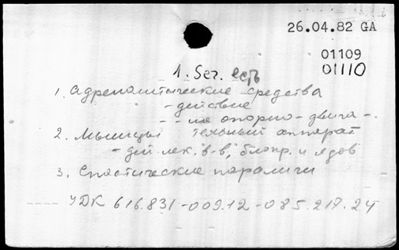 26.04.82 GA
01109
01110
1. Ser. есть
1. Адренолитические средства
- действие
- - на опорно-двига-
2. Мышцы тельный аппарат
- дей. лек. в-в, блокр. и ядов
3. Спастические параличи
УДК 616.831-009.12-085.217.24